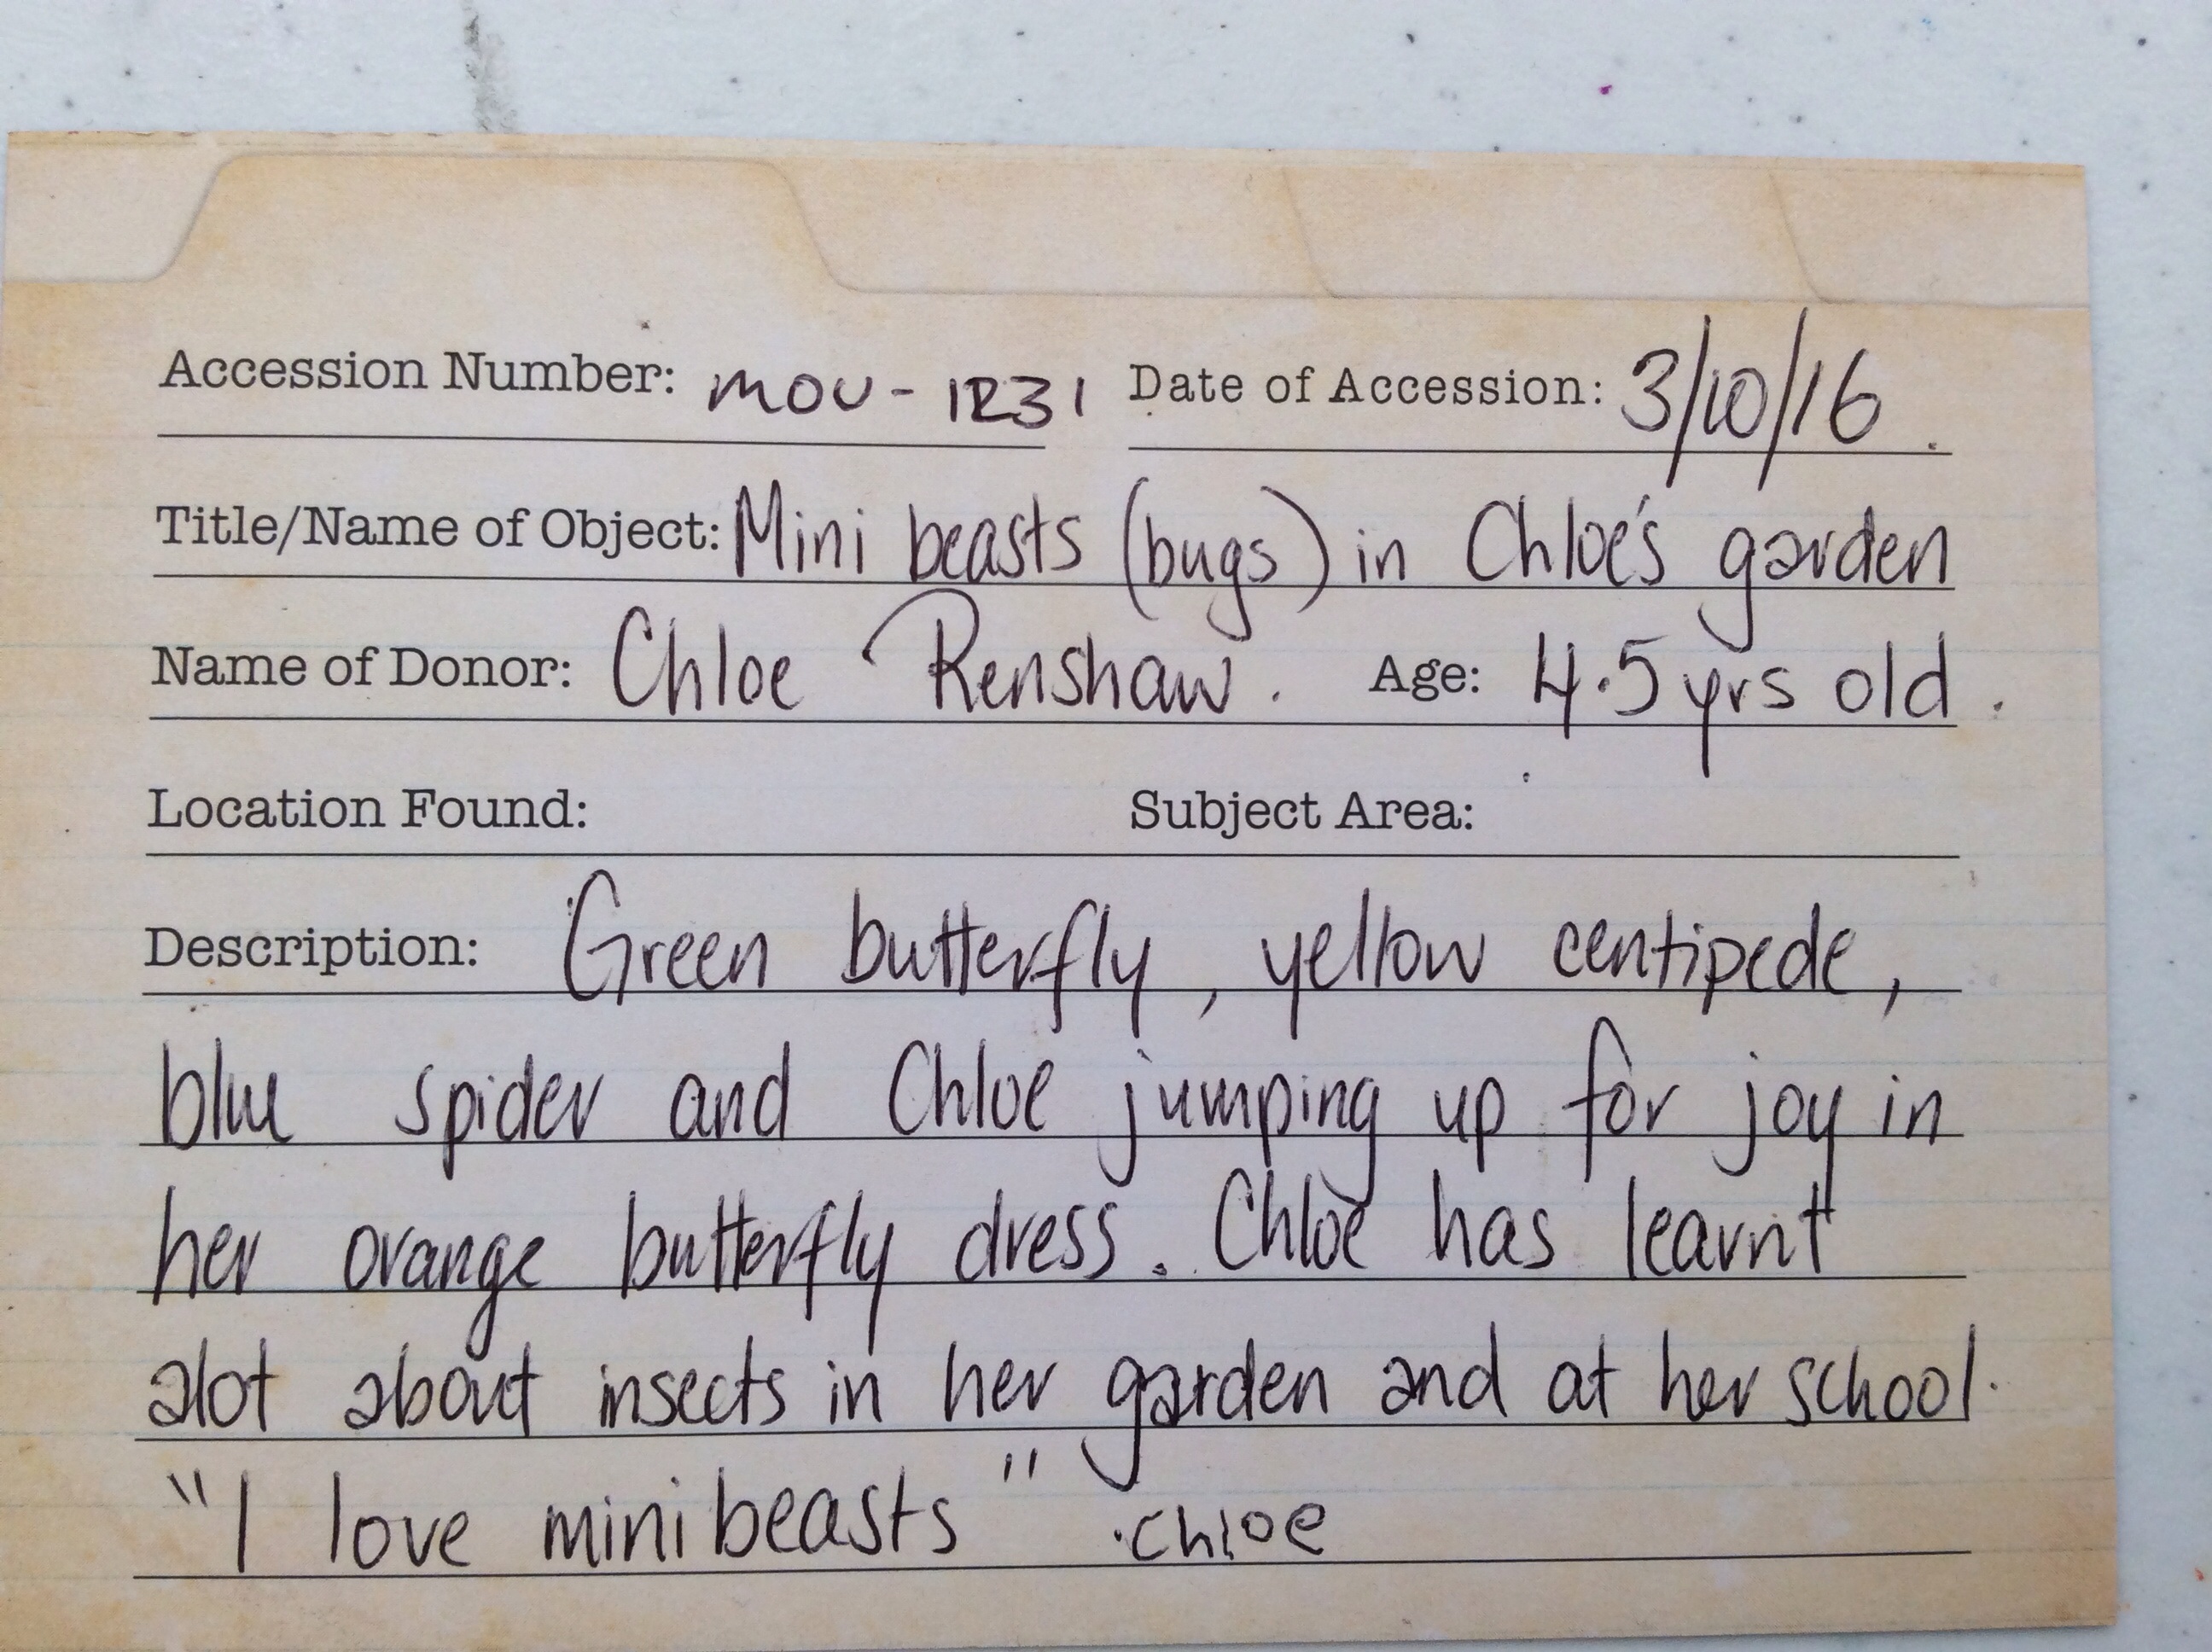 Accession Number: MOU-1231 Date of Accession: 3/10/16.
Title/Name of Object: Mini beasts (bugs) in Chloe's garden
Name of Donor: Chloe Renshaw. Age: 4.5 yrs old.
Location Found: Subject Area:
Description: Green butterfly, yellow centipede,
blue spider and Chloe jumping up for joy in
her orange butterfly dress. Chloe has learnt
alot about insects in her garden and at her school.
"I love minibeasts" .Chloe